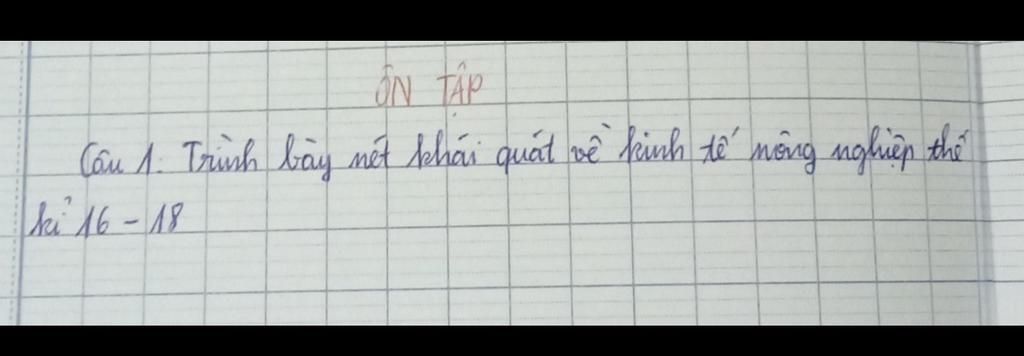 ÔN TẬP
Câu 1. Trình bày nét khái quát về kinh tế nông nghiệp thế
kỉ 16 - 18